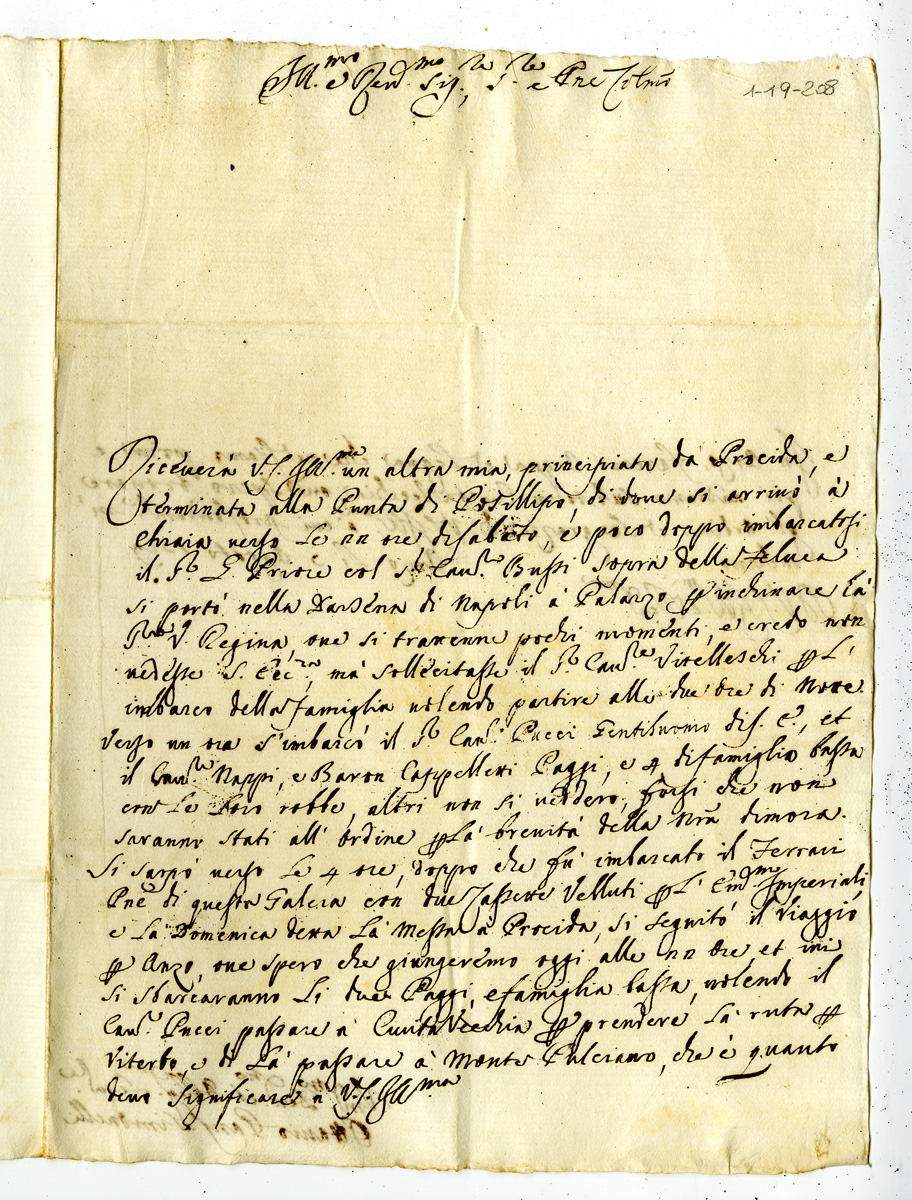 Ill.mo e Rev.mo Sig.re S.re e Pne Colmo
1-19-208
Riceverà V.S. Ill.ma un altra mia, principiata da Procida, e
terminata alla Punta di Posillipo, di dove si arrivò à
Chiaia verso le 22 ore, di sabato, è poco doppo imbarcatosi
il S.r G. Priore col S.r Cav.re Bussi sopra della feluca
si portò nella Darsena di Napoli à Palazzo p inchinare la
V. Regina, ove si trattenne pochi momenti, e credo non
vedesse S. Ecc.za, mà sollecitasse il S.r Cav.re Vitelleschi p l'
imbarco della famiglia volendo partire alle due ore di Notte.
Verso un ora s'imbarcò il S.r Cav.re Pucci Gentiluomo di S. E., et
il Cav.re Nappi, e Baron Cappelletti Paggi, e 4 di famiglia bassa
con le loro robbe, altri non si veddero, forsi che non
saranno stati all' ordine p la brevità della nra dimora.
Si sarpò verso le 4 ore, doppo che fù imbarcato il Ferrari
Pne di questa Galera con due Cassette Velluti p l' Em.mo Imperiali,
e la Domenica detta la Messa à Procida, si seguitò il viaggio
p Anzo, ove spero che giungeremo oggi alle 22 ore, et ivi
si sbarcaranno li due Paggi, e famiglia bassa, volendo il
Cav.re Pucci passare à Civita Vecchia p prendere la ruta p
Viterbo, e di là passare à Monte Pulciano, che è quanto
devo significare à V.S. Ill.ma